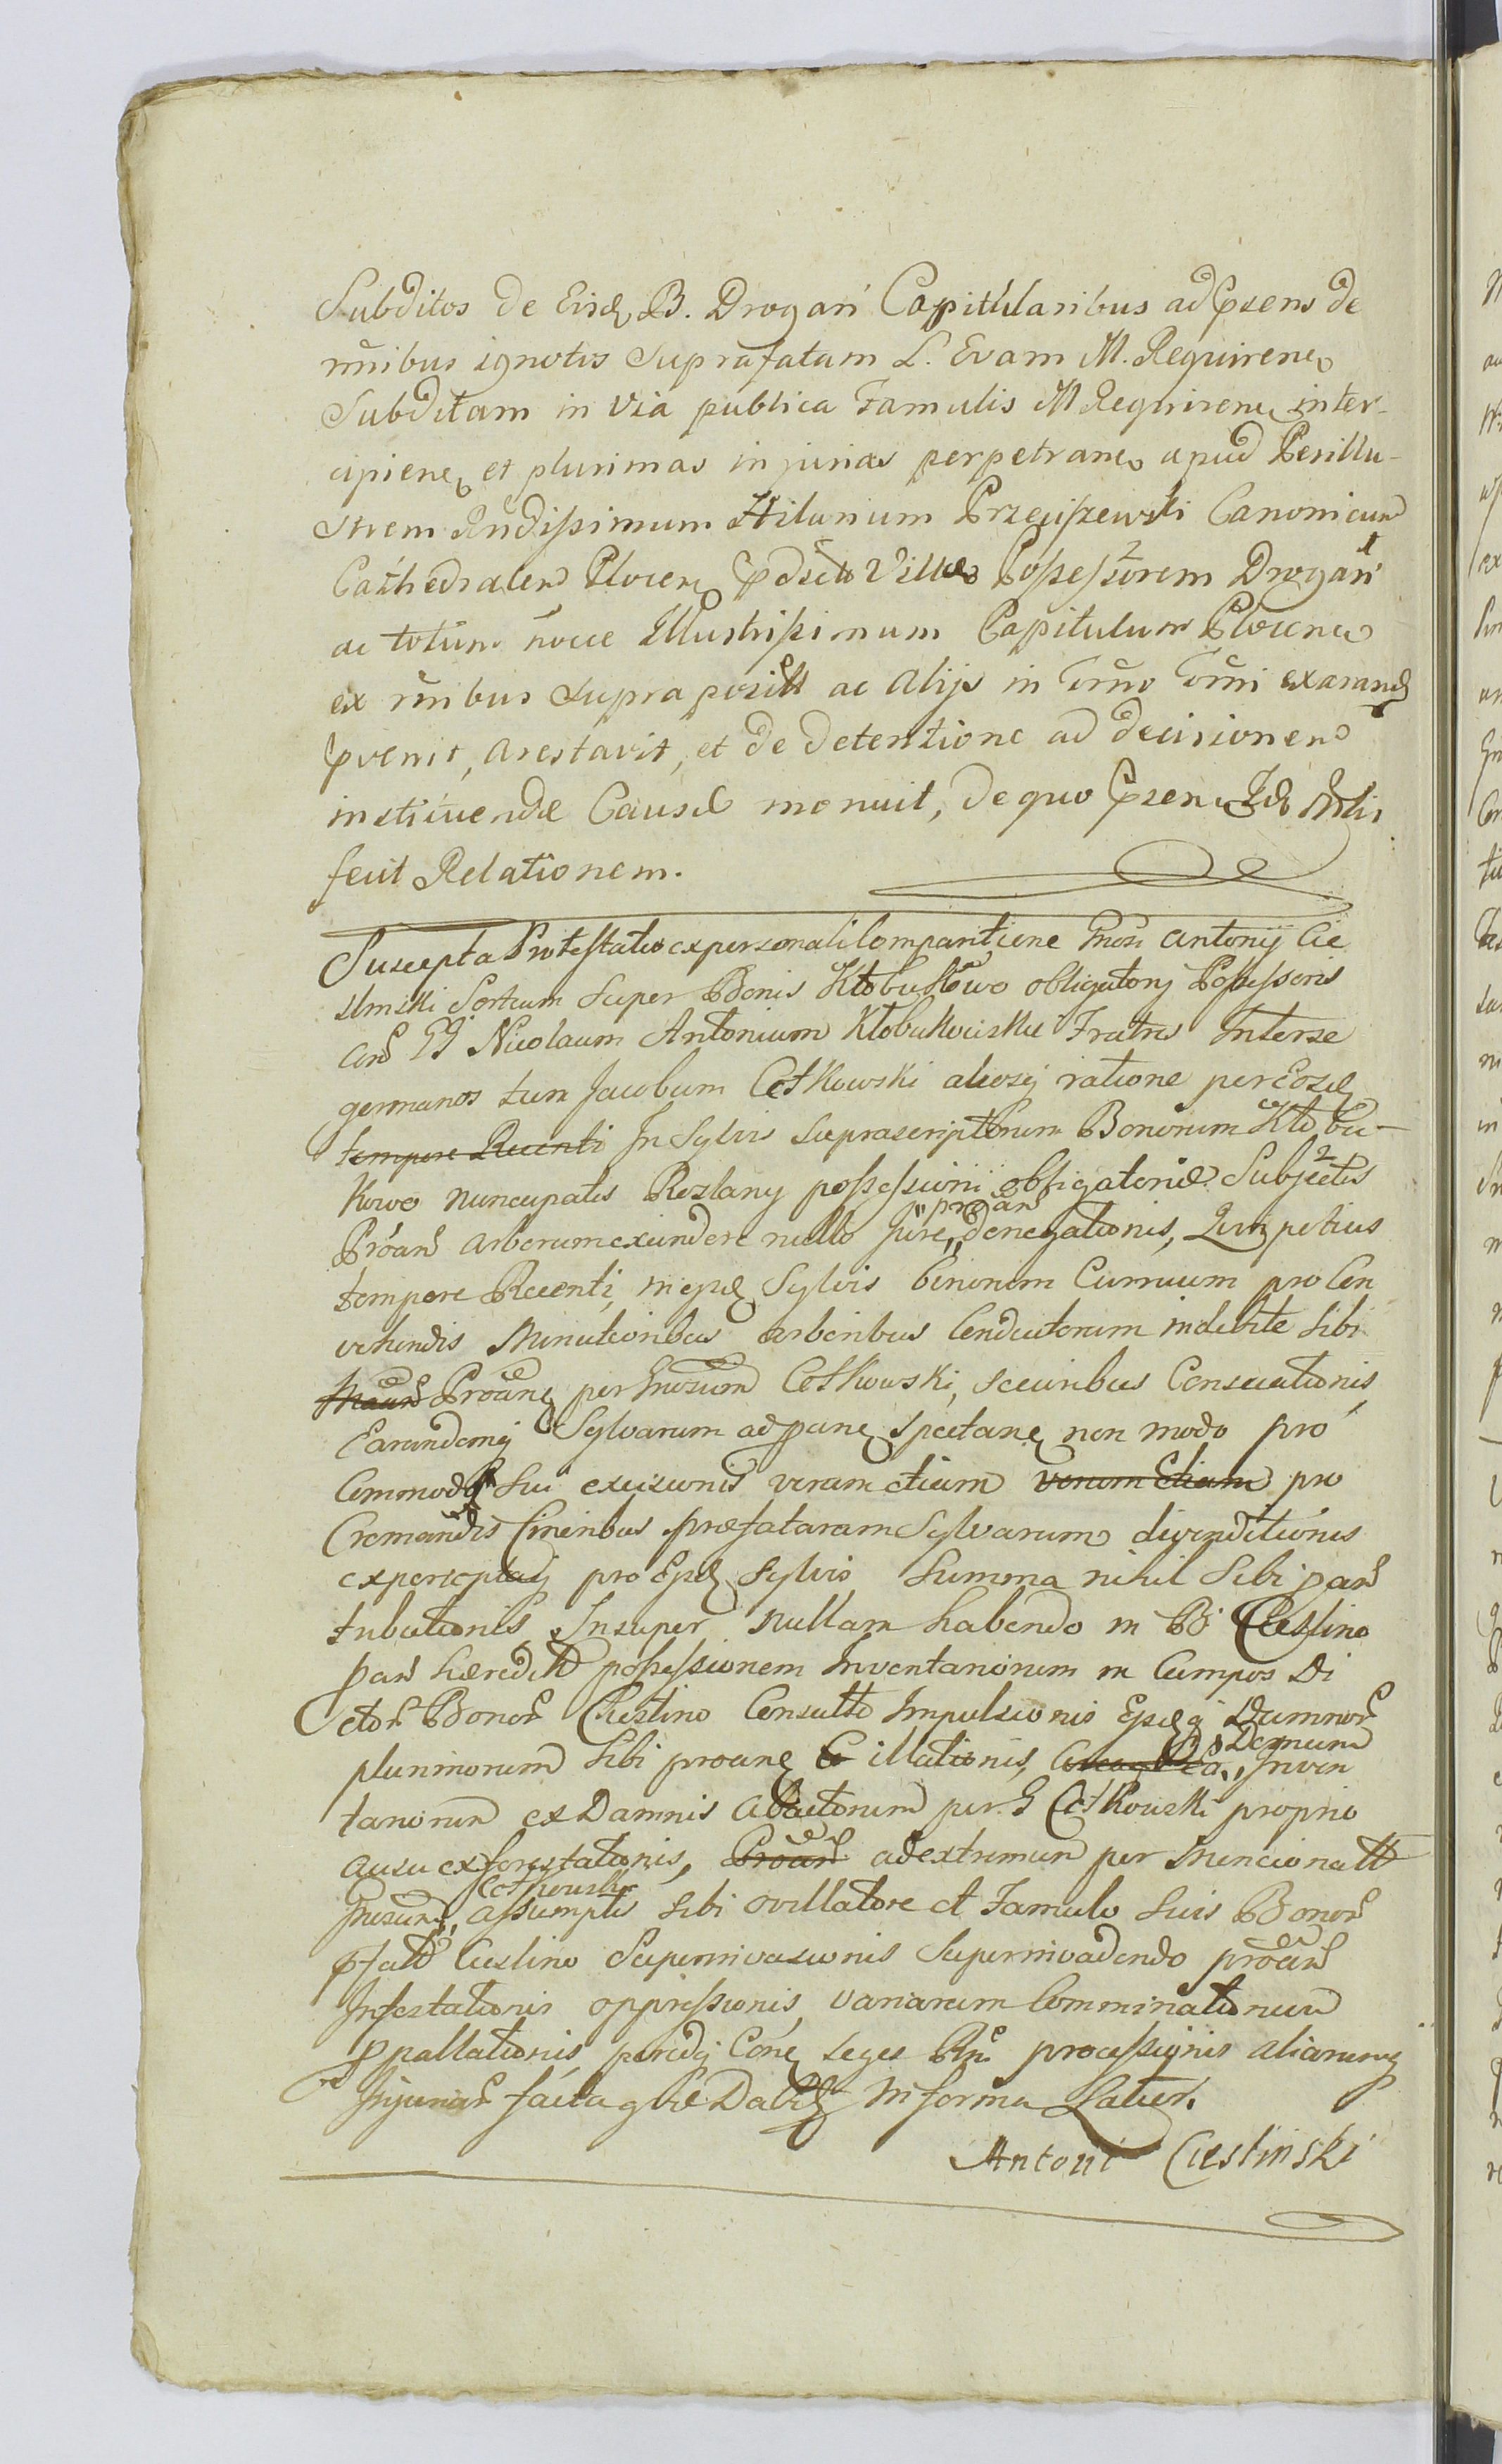 Subditos de Eisd B. Drogan Capitularibus ad psens de
nnibus ignotos suprafatam L. Evam M. Requirene
Subditam in via publica Famulis M Requirene inter-
cipiene et plurimas injurias perpetrane apud Perillu-
strem Rndissimum Hilarium Przeciszewski Canonicum
Cathedralem Plocen pdicte Villae Possessorem Drogan
ac totum Illustrissimum Capitulum Plocene
ex nnibus supra positt ac alijs in Trno Trni exarand
pvenit, arestavit, et de detentione ad decisionem
instituendae Causae monuit, de quo psen Ids Mlis
fecit Relationem.
Suscepta Protestatio ex personali Comparitione Gnosi Antonij Cie
slinski Sortium super Bonis Kłobukowo obligatorij Possessoris
con GG Nicolaum Antonium Kłobukowskie Fratres Interse
germanos tum Jacobum Cetkowski aliosq ratione per Eosd
tempore Recenti In Sylvis suprascriptorum Bonorum Kłobu-
kowo nuncupatis Rozlany possessioni obligatoriae Subjectis
Proan arborum excindere nullo jure proan denegationis, Quinpotius
tempore Recenti, in ejsd Sylvis binorum Curruum pro Con
vehendis Minutioribus arboribus Conductorum indebite sibi
Proane per Gnosum Cetkowski, securibus Consecutionis
Earundemq Sylvarum ad pane spectane non modo pro
Commodo sui excisionis verum etiam verum Etiam pro
Cremandis Cineribus praefatarum Sylvarum divenditionis
experceptaq pro Ejsd Sylvis Summa nihil Sibi pan
tributionis, Insuper nullam habendo in B Cieslino
pan haeredit possessionem Inventariorum in Campos Di
ctor Bonor Cieslino Consulto Impulsionis Ejsdq Damnor
plurimorum sibi proane illationis, Demum Inven
tariorum ex Damnis Abactorum per G Cetkowski proprio
ausu exforestationis, Proan ad extremum per Mencionatt
Gnosum Cetkowski, assumptis sibi ovillatore et Famulo suis Bonor
pfatt Cieslino Superinvasionis Superinvadendo proan
Infestationis oppressionis, variarum Comminationum
ppallationis, peridq Cone leges Rni processionis aliarumq
Injuriar facta gble Dabitt in forma Latiori.
Antoni Cieslinski